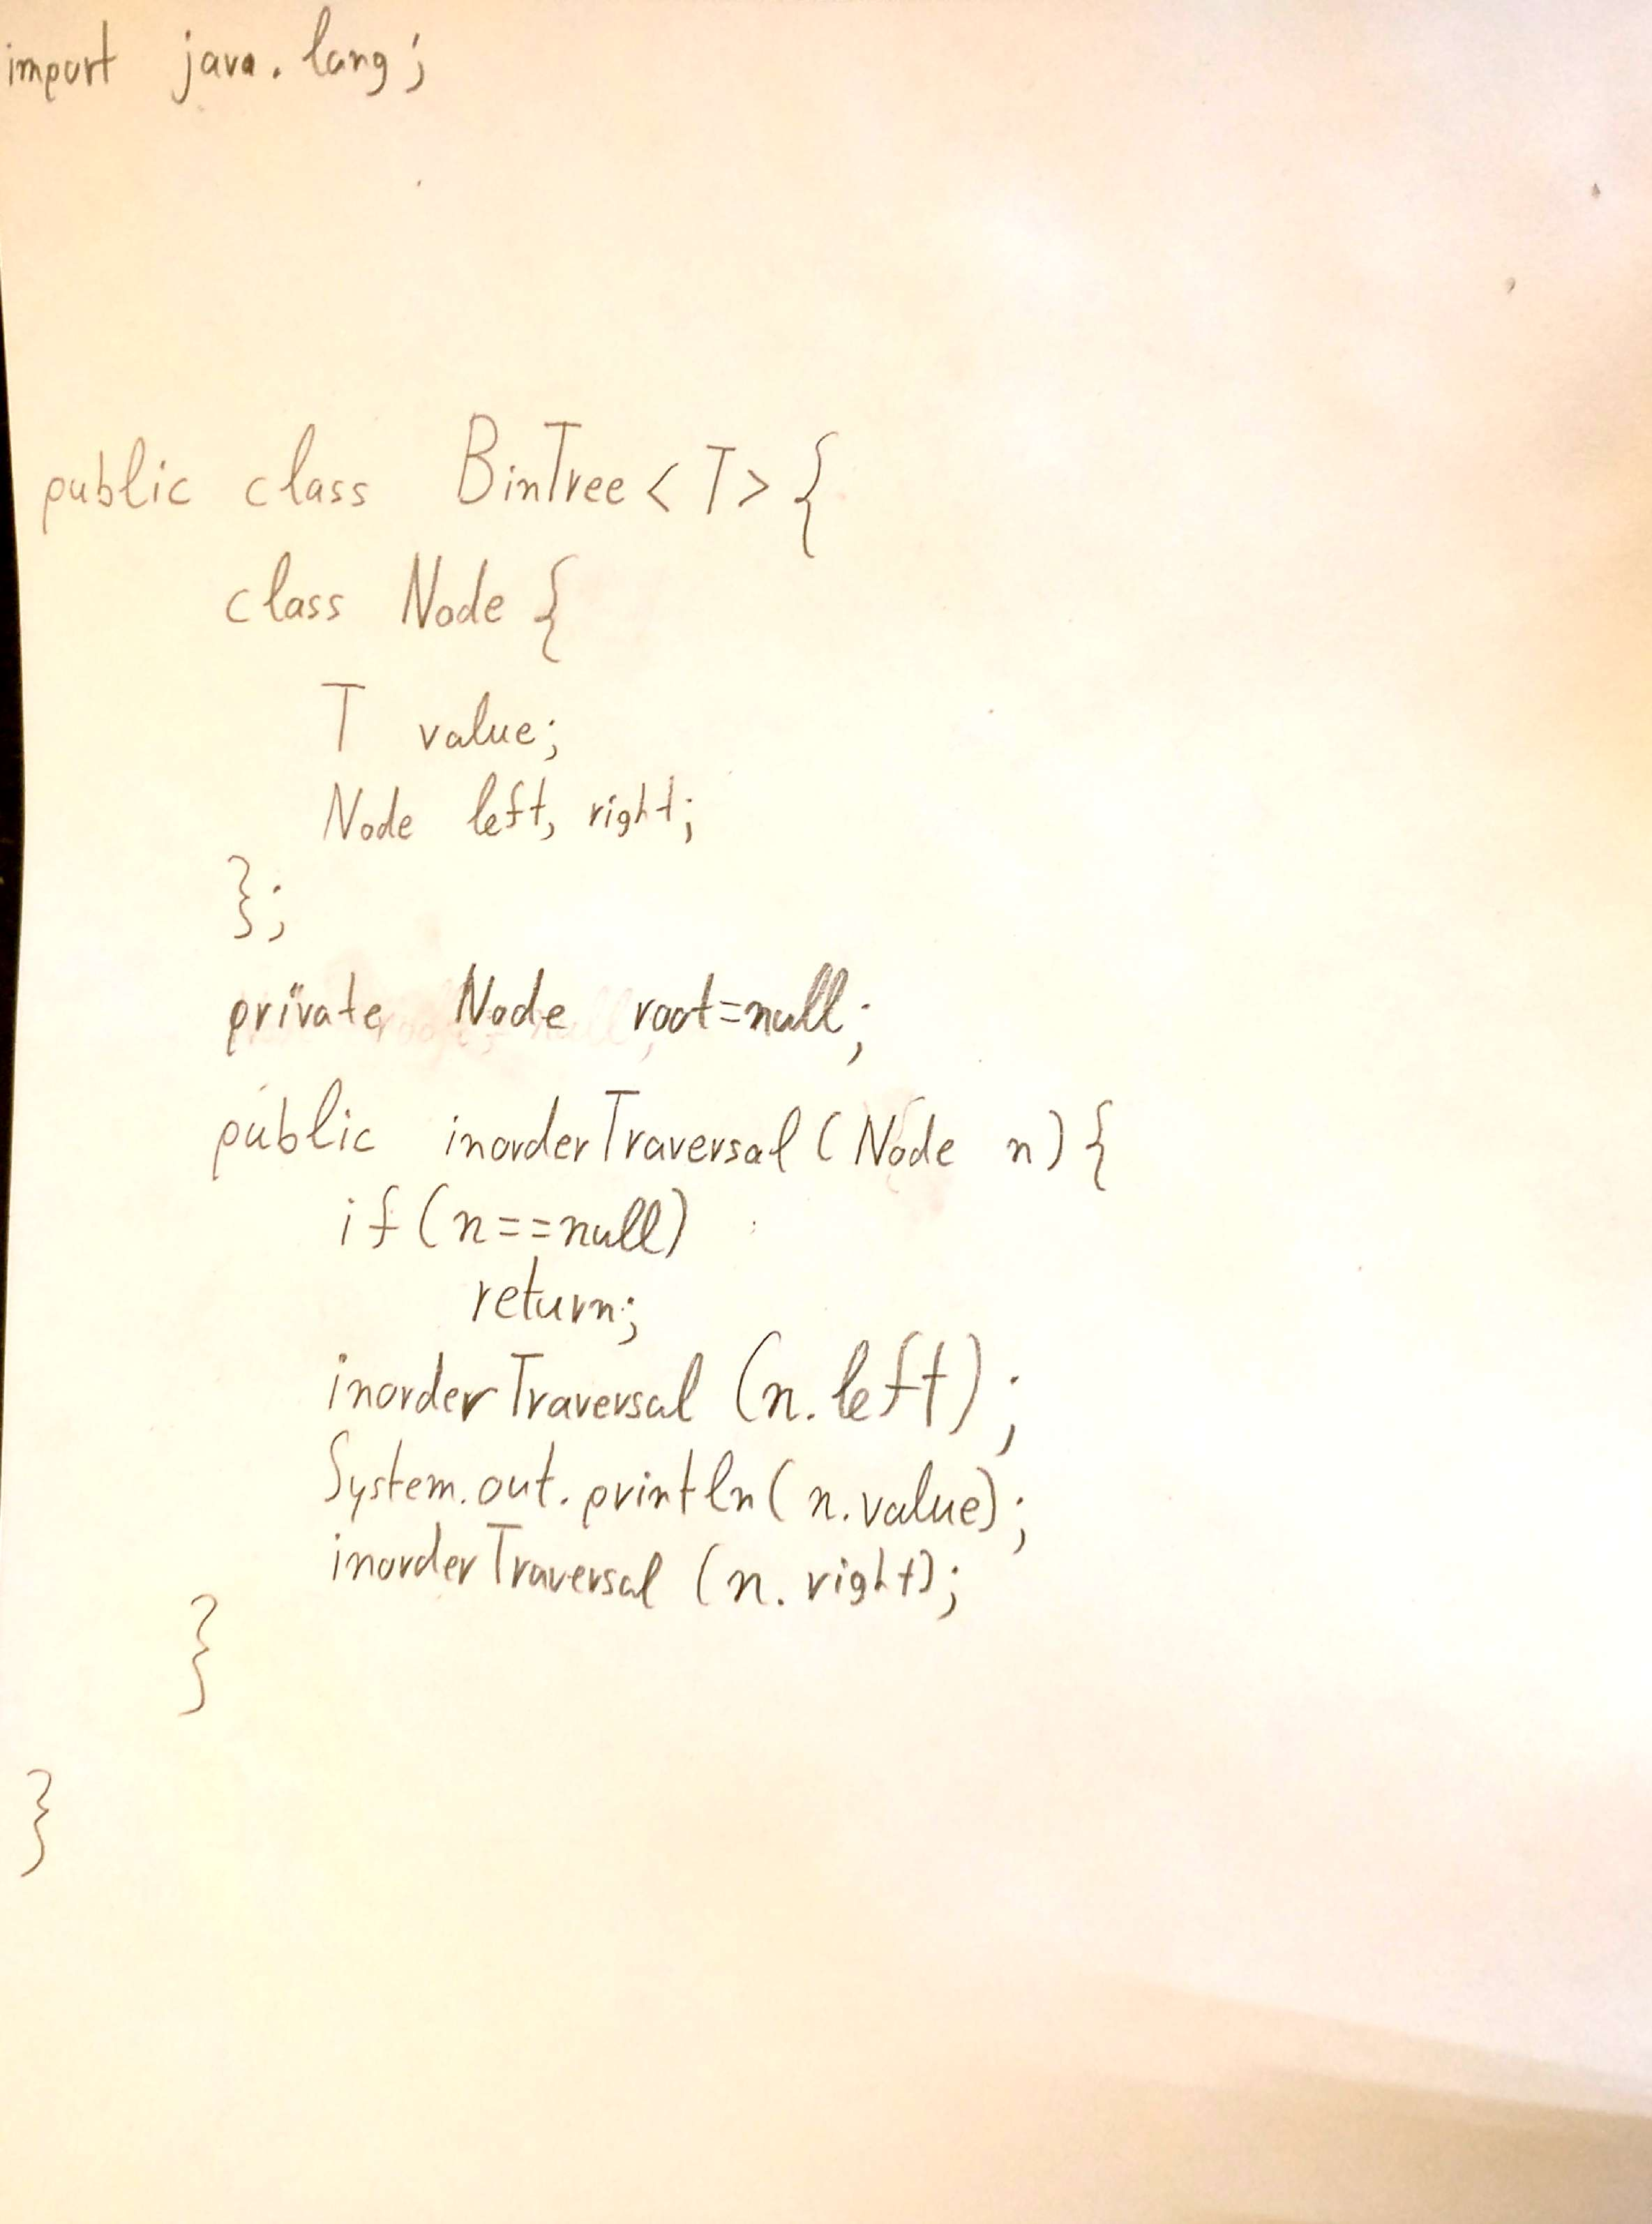 import java.lang;
public class BinTree<T>{
class Node {
T value;
Node left, right;
};
private Node root=null;
public inorderTraversal(Node n){
if(n==null)
return;
inorderTraversal (n.left);
System.out.println(n.value);
inorderTraversal (n.right);
}
}